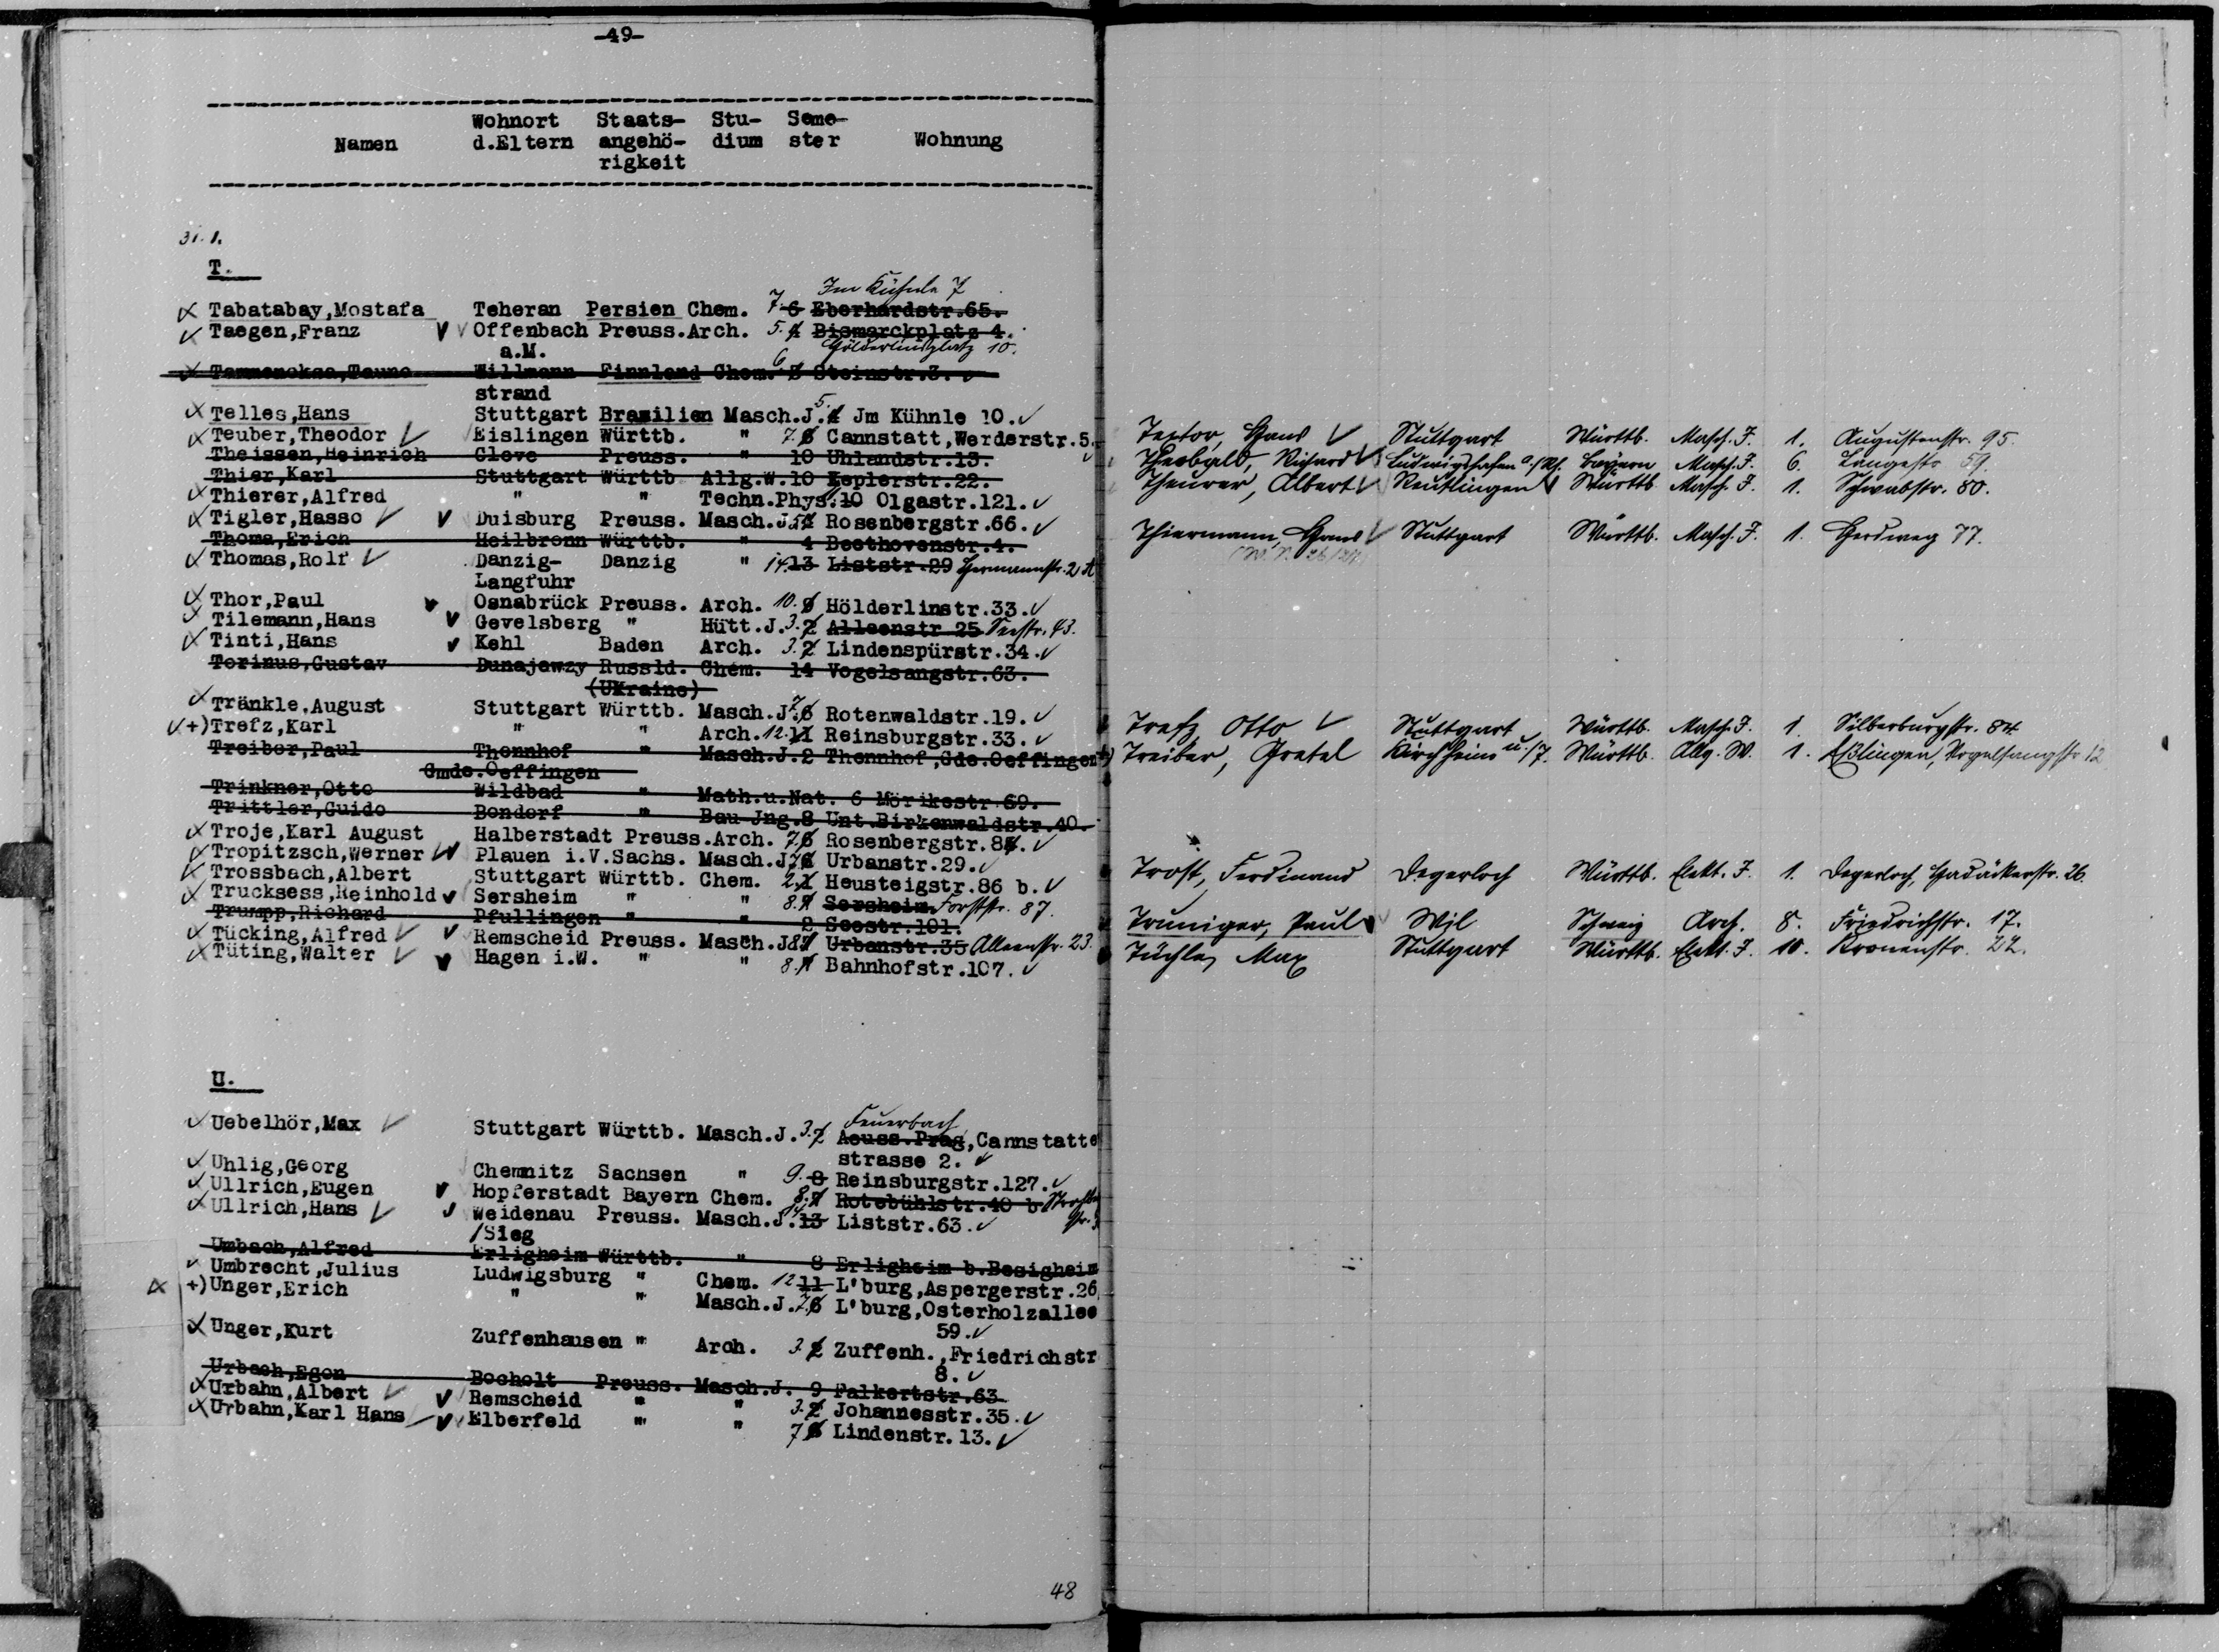 -49-
Namen Wohnort d.Eltern Staats-angehö-rigkeit Stu-dium Seme-ster Wohnung
31.1.
T.
Im Kühnle 7
Tabatabay,Mostafa Teheran Persien Chem. 7. 6 Eberhardstr.65.
Taegen,Franz Offenbach Preuss.Arch. 5. 4 Bismarckplatz 4.
a.M. Hölderlinplatz 10.
Willmann Finnland Chem. 6 5 Steinstr.3.
strand
Telles,Hans Stuttgart Brasilien Masch.J. 5. 4 Jm Kühnle 10.
Teuber,Theodor Eislingen Württb. " 7. 6 Cannstatt,Werderstr.5.
Theissen,Heinrich Cleve Preuss. " 10 Uhlandstr.13.
Thier,Karl Stuttgart Württb Allg.W.10 Keplerstr.22.
Thierer,Alfred " " Techn.Phys. 10 Olgastr.121.
Tigler,Hasso Duisburg Preuss. Masch.J. 5. 4 Rosenbergstr.66.
Thoma,Erich Heilbronn Württb. " 4 Beethovenstr.4.
Thomas,Rolf Danzig- Danzig " 14. 13 Liststr.29 Hermannstr. 2 A
Langfuhr
Thor,Paul Osnabrück Preuss. Arch. 10. 9 Hölderlinstr.33.
Tilemann,Hans Gevelsberg " Hütt.J. 3. 2 Alleenstr 25 Seestr. 43.
Tinti,Hans Kehl Baden Arch. 3. 2 Lindenspürstr.34.
Torinus,Gustav Dunajewzy Russld. Chem. 14 Vogelsangstr.63.
(Ukraine)
Tränkle,August Stuttgart Württb. Masch.J. 7. 6 Rotenwaldstr.19.
+)Trefz,Karl " " Arch. 12. 11 Reinsburgstr.33.
Treiber,Paul Thennhof " Masch.J.2 Thennhof,Gde.Oeffingen
Gmde.Oeffingen
Trinkner,Otto Wildbad " Math.u.Nat. 6 Mörikestr 69.
Trittler,Guido Bondorf " Bau Jng.8 Unt.Birkenwaldstr.40.
Troje,Karl August Halberstadt Preuss.Arch. 7. 6 Rosenbergstr.84.
Tropitzsch,Werner Plauen i.V.Sachs. Masch.J. 7. 6 Urbanstr.29.
Trossbach,Albert Stuttgart Württb. Chem. 2. 1 Heusteigstr.86 b.
Trucksess,Reinhold Sersheim " " 8. 7 Sersheim. Forststr. 87.
Trumpp,Richard Pfullingen " " 2 Seestr.101.
Tücking,Alfred Remscheid Preuss. Masch.J. 8. 7 Urbanstr.35 Alleenstr. 23.
Tüting,Walter Hagen i.W. " " 8. 7 Bahnhofstr.107.
U.
Feuerbach
Uebelhör,Max Stuttgart Württb. Masch.J. 3. 2 Aeuss.Prag,Cannstatte
strasse 2.
Uhlig,Georg Chemnitz Sachsen " 9. 8 Reinsburgstr.127.
Ullrich,Eugen Hopferstadt Bayern Chem. 8. 7 Rotebühlstr.40 b
Ullrich,Hans Weidenau Preuss. Masch.J. 14. 13 Liststr.63.
/Sieg
Umbach,Alfred Erligheim Württb. " 8 Erligheim b.Besigheim
Umbrecht,Julius Ludwigsburg " Chem. 12 11 L'burg,Aspergerstr.26
+)Unger,Erich " " Masch.J. 7. 6 L'burg,Osterholzallee
59.
Unger,Kurt Zuffenhausen " Arch. 3. 2 Zuffenh.,Friedrichstr
8.
Urbach,Egon Bocholt Preuss. Masch.J. 9 Falkertstr.63
Urbahn,Albert Remscheid " " 3. 2 Johannesstr.35.
Urbahn,Karl Hans Elberfeld " " 7 6 Lindenstr.13.
48
Textor, Hans Stuttgart Württb. Masch. J. 1. Augustenstr. 95.
Theobald, Richard Ludwigshafen a./Rh. Bayern Masch. J. 6. Langestr. 59.
Theurer, Albert Reutlingen Württb. Masch. J. 1. Schwabstr. 80.
Thiermann, Hans Stuttgart Württb. Masch. J. 1. Herdweg 77.
Trefz, Otto Stuttgart Württb. Masch. J. 1 Silberburgstr. 84
+) Treiber, Gretel Kirchheim u./T. Württb. Allg. W. 1. Eßlingen, Vogelsangstr 12
Trost, Ferdinand Degerloch Württb. Elekt. J. 1. Degerloch, 26.
Truniger, Paul Wil Schweiz Arch. 8. Friedrichstr. 17.
Tüchle, Max Stuttgart Württb. Elekt. J. 10. Kronenstr. 22.